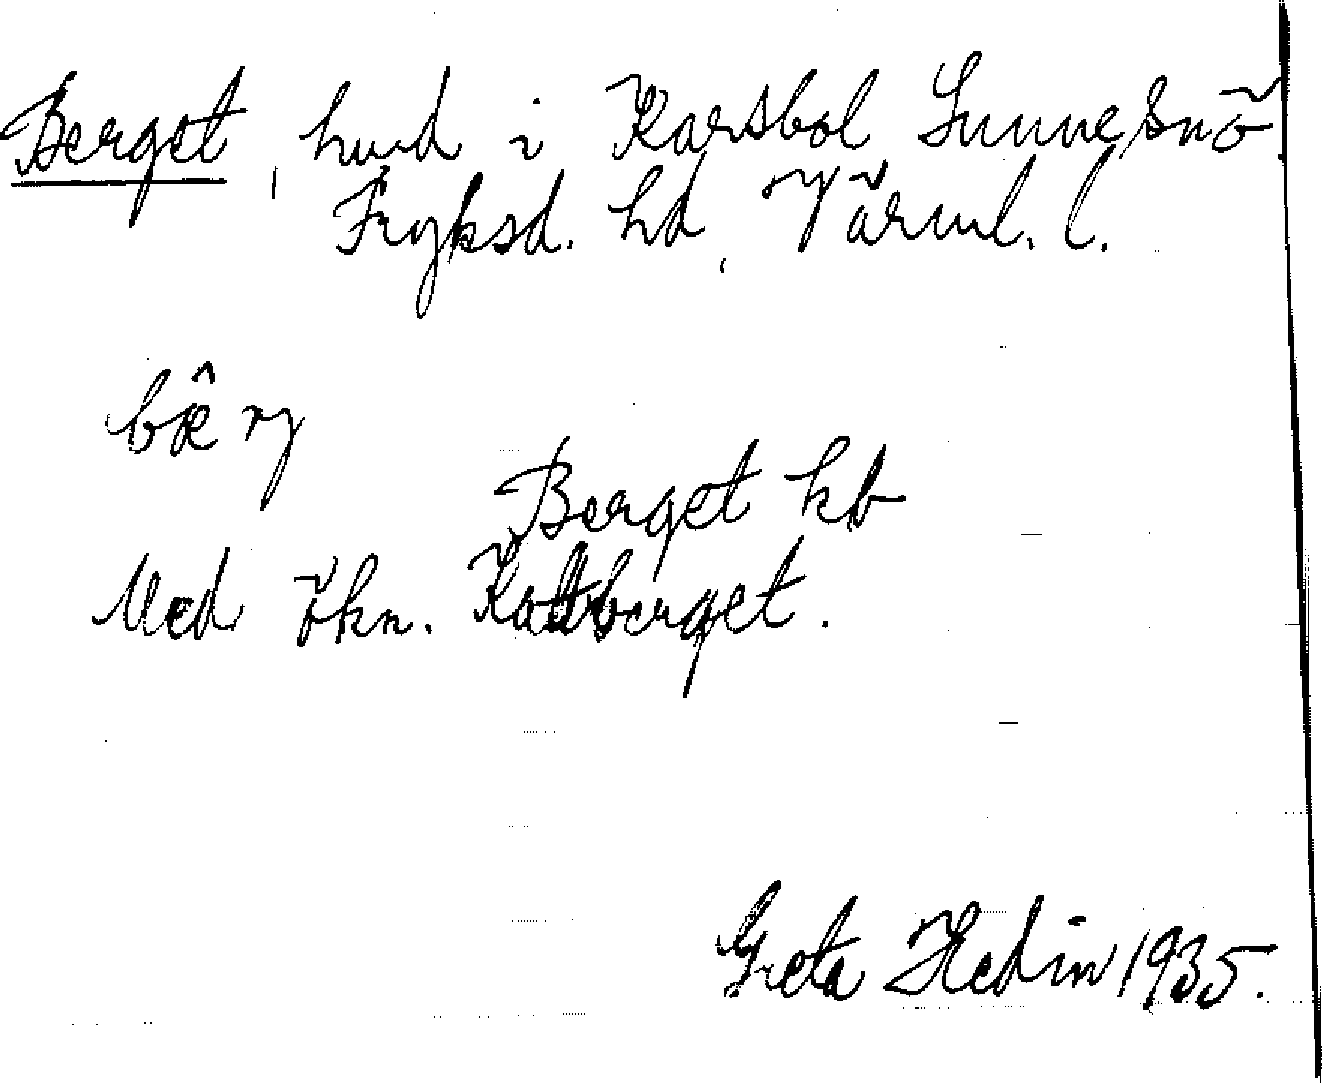 Berget, hmd i Karsbol Sunne, snö
Fryksd. hd, Värml. l.
bæ̂rj
Berget kb
Med ökn. Kattberget.
Greta Hedin 1935.